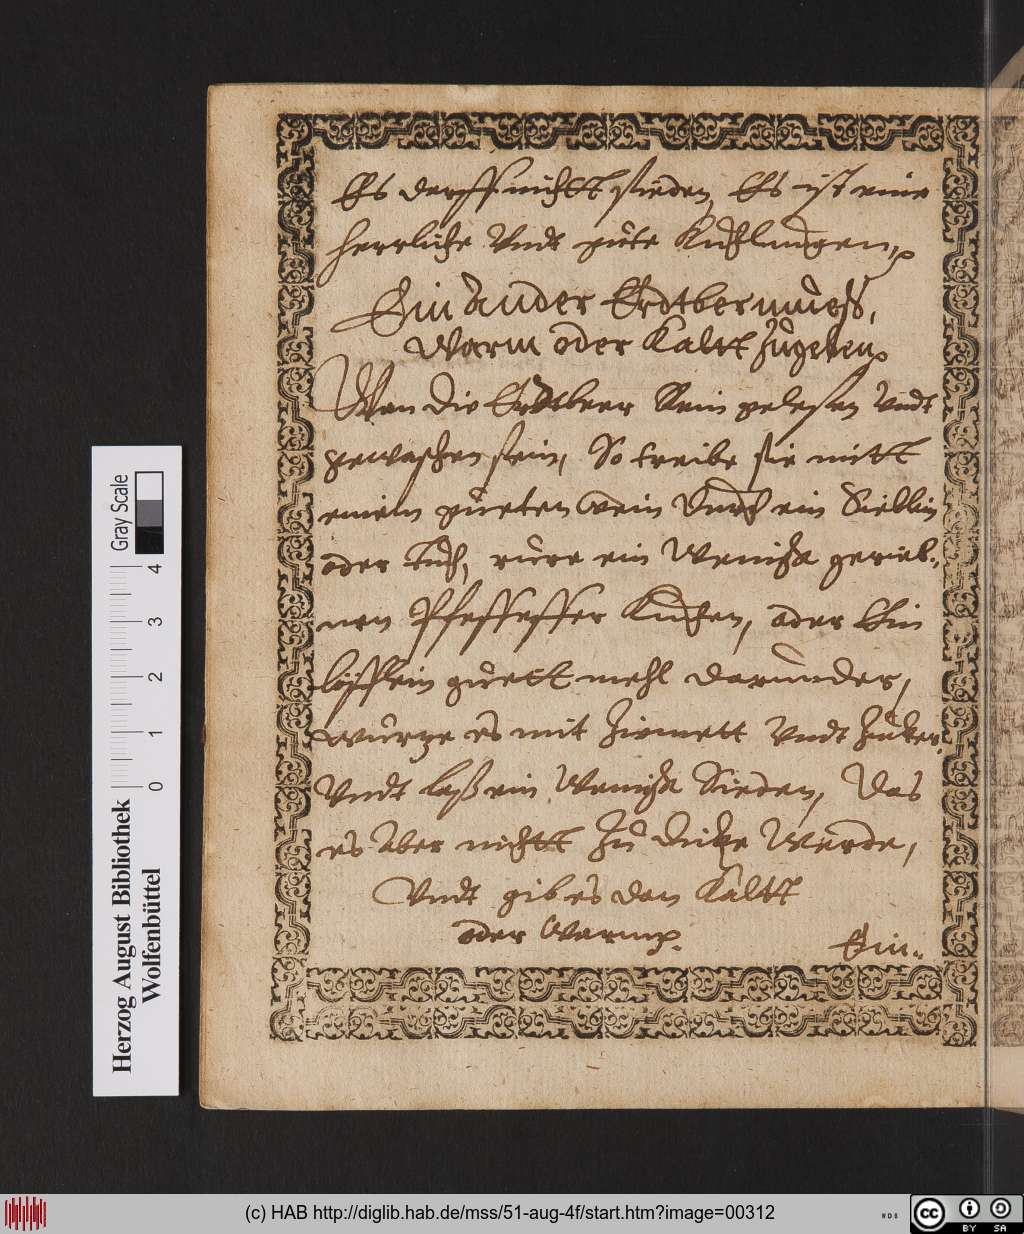 Es derff nichtt sieden, Es ist eine
herrliche Vndt guͤte Kuͤhlungen,
Ein ander Erdtbermuͤeß,
Warm oder Kaltt Zuͤgeben
Wan die Erdtbeer Rein gelesen Vndt
gewaschen sein, So treibe sie mitt
einem guͤeten wein durch ein Sieblin
oder tuch, ruͤre ein Wenicha gerieb-,
nen Pfeffeffer Kuchen, oder Ein
löfflein guͤett mehl darunder,
wuͤrtze es mit Zimmett Vndt Zuͤker,
Vndt laß ein Wenicha Sieden, Das
es Aber nichtt Zuͤ dicke Werde,
Vndt gib es den Kaltt
oder Warm.
Ein-
Gray Scale
4
3
2
1
0
Herzog August Bibliothek
Wolfenbüttel
(c) HAB http://diglib.hab.de/mss/51-aug-4f/start.htm?image=00312
WDB
cc
BY SA